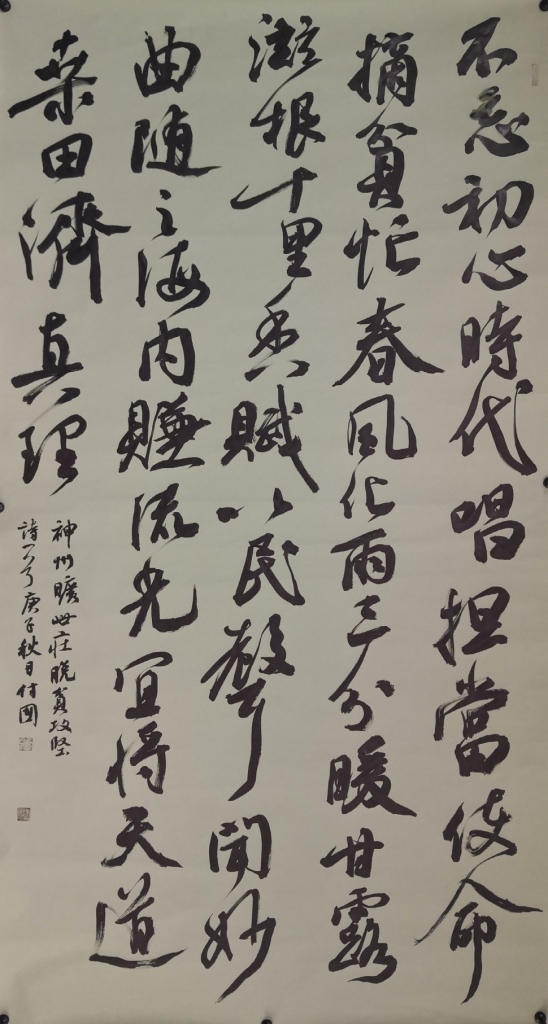 不忘初心時代唱担當使命
摘貧忙春風化雨三分暖甘露
滋根十里香賦以民聲聞妙
曲随之海内賺流光宜将天道
桑田濟真理
神州曠世莊脱貧攻堅
詩一首庚子秋月付國